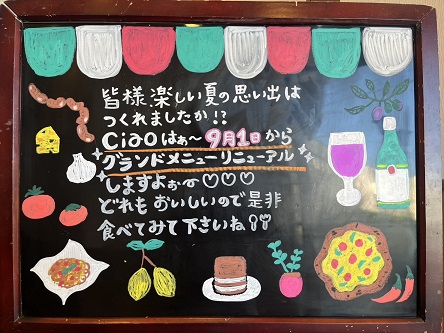 皆様楽しい夏の思い出は
つくれましたか!?
Ciaoはぁ〜9月1日から
グランドメニューリニューアル
しますよぉ♡♡♡
どれもおいしいので是非
食べてみて下さいね!!